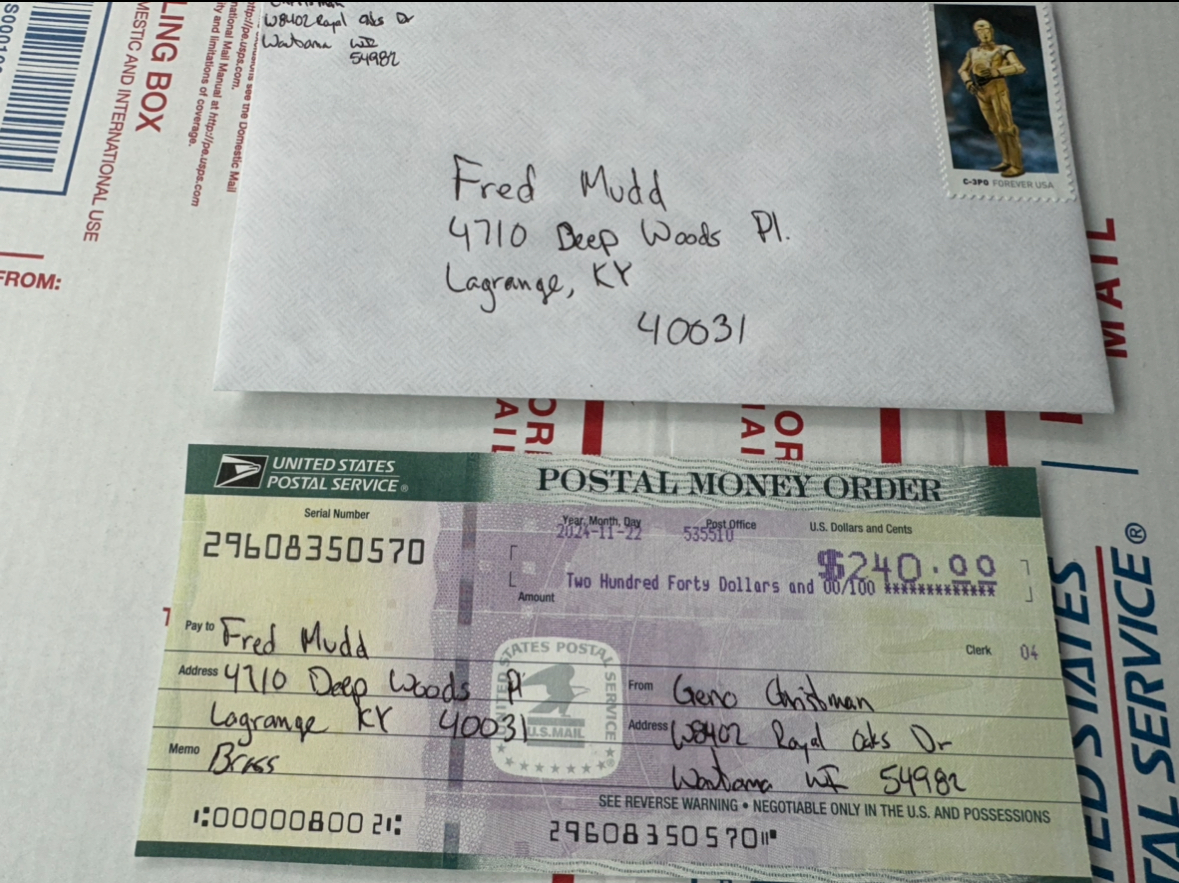 W8402 Royal Oaks Dr
Wautoma WI
54982
C-3PO FOREVER USA
Fred Mudd
4710 Deep Woods Pl.
Lagrange, KY
40031
LING BOX
MESTIC AND INTERNATIONAL USE
see the Domestic Mail
http://pe.usps.com.
national Mail Manual at http://pe.usps.com
ity and limitations of coverage.
FROM:
MAIL
UNITED STATES
POSTAL SERVICE®
POSTAL MONEY ORDER
Serial Number
29608350570
Year, Month, Day
2024-11-22
Post Office
535510
U.S. Dollars and Cents
$240.00
Amount
Two Hundred Forty Dollars and 00/100 *************
Clerk 04
Pay to Fred Mudd
Address 4710 Deep Woods Pl
Lagrange KY 40031
Memo Brass
UNITED STATES POSTAL SERVICE
U.S. MAIL
From Geno Christman
Address W8402 Royal Oaks Dr
Wautoma WI 54982
SEE REVERSE WARNING • NEGOTIABLE ONLY IN THE U.S. AND POSSESSIONS
⑆000008002⑆
29608350570⑈
ED STATES
TAL SERVICE®